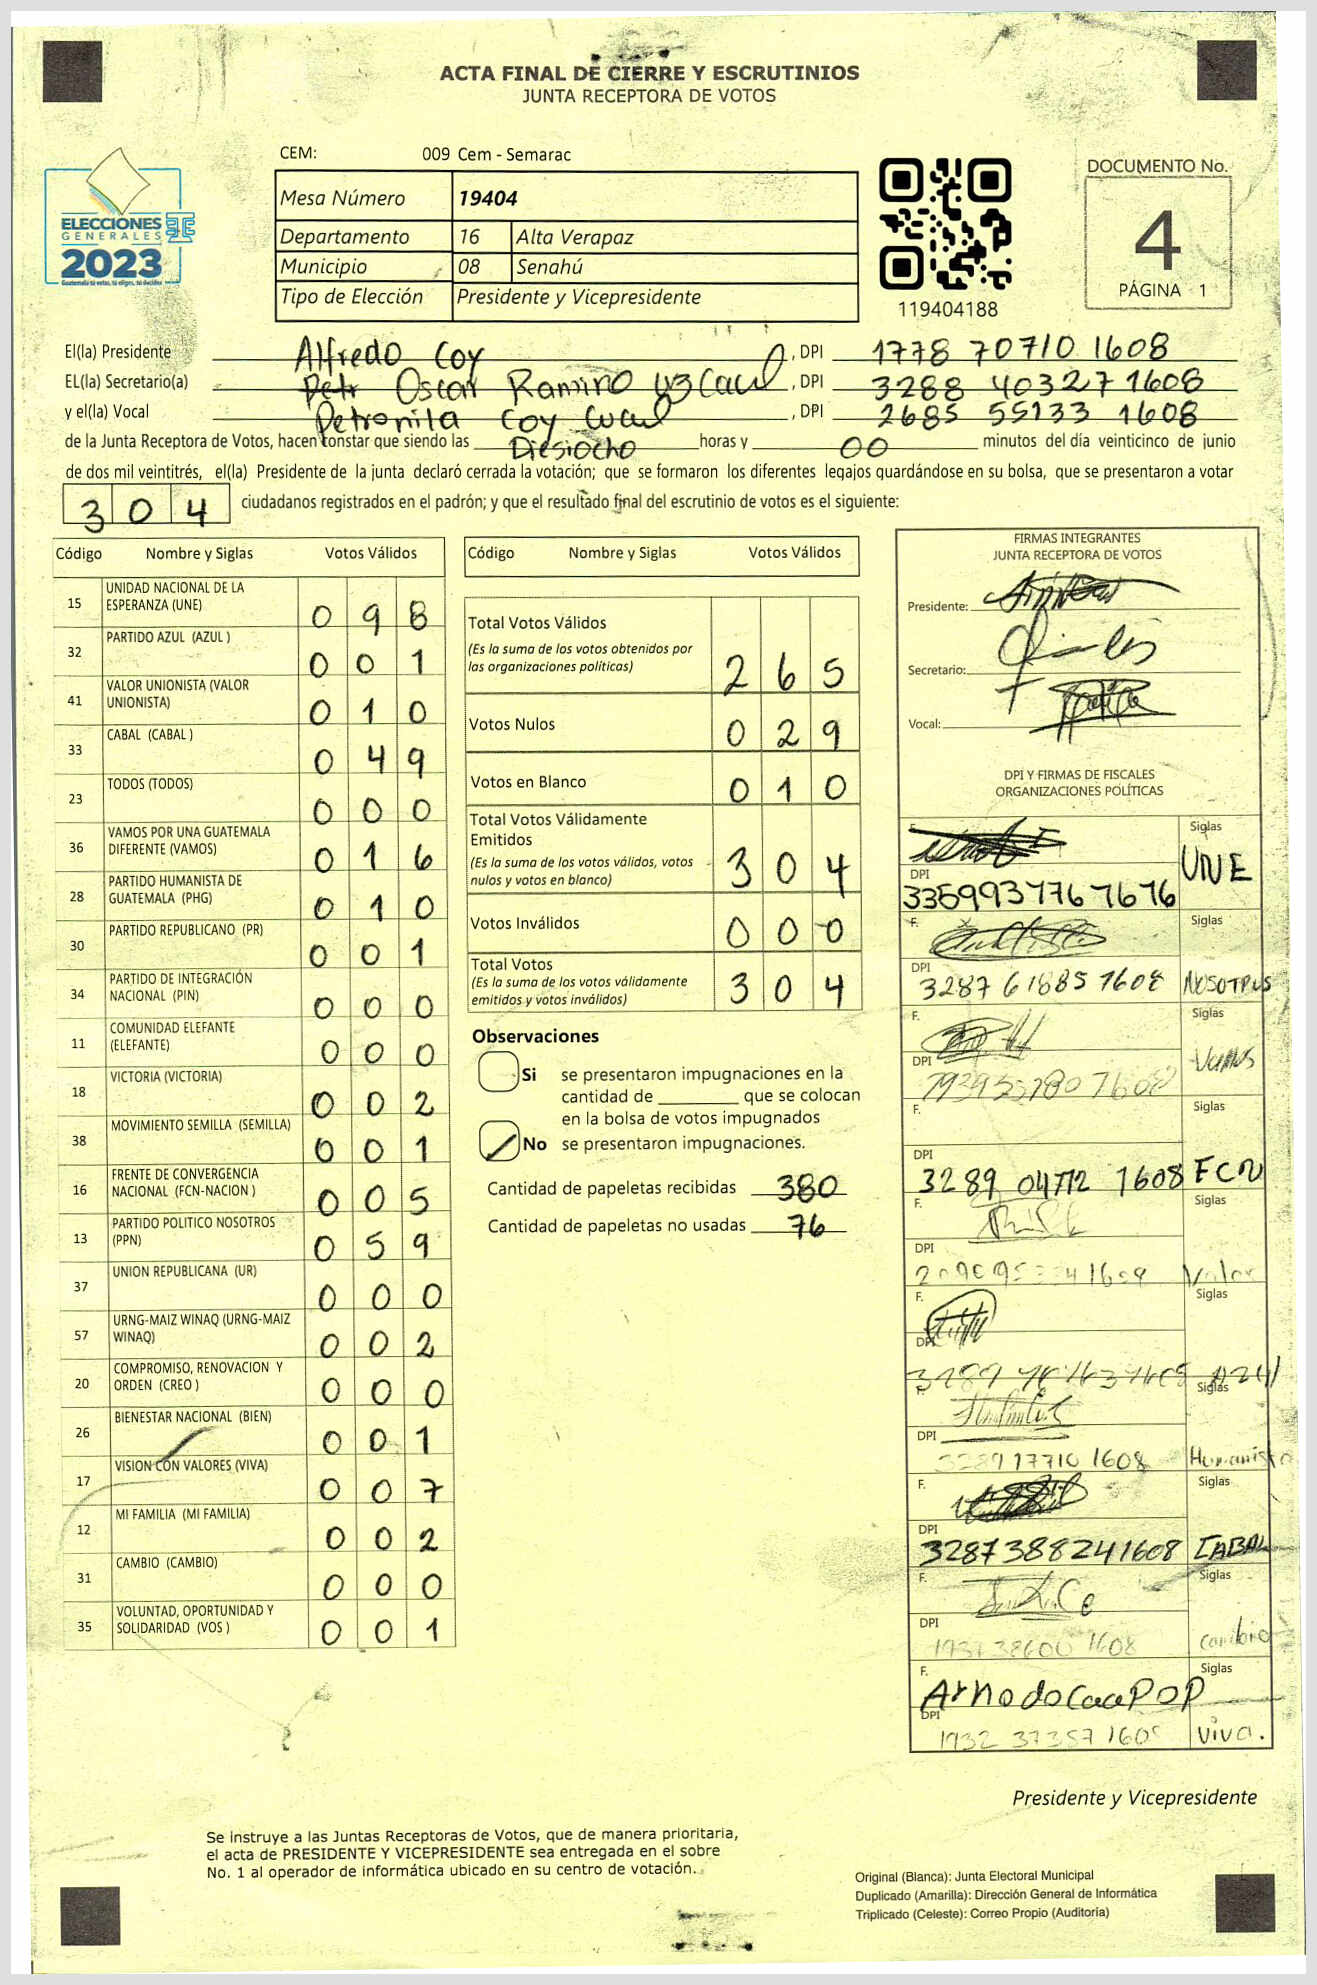 ACTA FINAL DE CIERRE Y ESCRUTINIOS
JUNTA RECEPTORA DE VOTOS
CEM: 009 Cem - Semarac
ELECCIONES
GENERALES
2023
Guatemala tú votas, tú eliges, tú decides
Mesa Número 19404
Departamento 16 Alta Verapaz
Municipio 08 Senahú
Tipo de Elección Presidente y Vicepresidente
119404188
DOCUMENTO No.
4
PÁGINA 1
El(la) Presidente Alfredo Coy , DPI 1778 70710 1608
EL(la) Secretario(a) Oscar Ramino , DPI 3288 40327 1608
y el(la) Vocal Petronila Coy Cucul , DPI 2685 55133 1608
de la Junta Receptora de Votos, hacen constar que siendo las Diesiocho horas y 00 minutos del día veinticinco de junio
de dos mil veintitrés, el(la) Presidente de la junta declaró cerrada la votación; que se formaron los diferentes legajos quardándose en su bolsa, que se presentaron a votar
304 ciudadanos registrados en el padrón; y que el resultado final del escrutinio de votos es el siguiente:
Código Nombre y Siglas Votos Válidos
15 UNIDAD NACIONAL DE LA ESPERANZA (UNE) 0 9 8
32 PARTIDO AZUL (AZUL ) 0 0 1
41 VALOR UNIONISTA (VALOR UNIONISTA) 0 1 0
33 CABAL (CABAL ) 0 4 9
23 TODOS (TODOS) 0 0 0
36 VAMOS POR UNA GUATEMALA DIFERENTE (VAMOS) 0 1 6
28 PARTIDO HUMANISTA DE GUATEMALA (PHG) 0 1 0
30 PARTIDO REPUBLICANO (PR) 0 0 1
34 PARTIDO DE INTEGRACIÓN NACIONAL (PIN) 0 0 0
11 COMUNIDAD ELEFANTE (ELEFANTE) 0 0 0
18 VICTORIA (VICTORIA) 0 0 2
38 MOVIMIENTO SEMILLA (SEMILLA) 0 0 1
16 FRENTE DE CONVERGENCIA NACIONAL (FCN-NACION ) 0 0 5
13 PARTIDO POLITICO NOSOTROS (PPN) 0 5 9
37 UNION REPUBLICANA (UR) 0 0 0
57 URNG-MAIZ WINAQ (URNG-MAIZ WINAQ) 0 0 2
20 COMPROMISO, RENOVACION Y ORDEN (CREO ) 0 0 0
26 BIENESTAR NACIONAL (BIEN) 0 0 1
17 VISION CON VALORES (VIVA) 0 0 7
12 MI FAMILIA (MI FAMILIA) 0 0 2
31 CAMBIO (CAMBIO) 0 0 0
35 VOLUNTAD, OPORTUNIDAD Y SOLIDARIDAD (VOS ) 0 0 1
Código Nombre y Siglas Votos Válidos
Total Votos Válidos
(Es la suma de los votos obtenidos por
las organizaciones políticas) 2 6 5
Votos Nulos 0 2 9
Votos en Blanco 0 1 0
Total Votos Válidamente
Emitidos
(Es la suma de los votos válidos, votos
nulos y votos en blanco) 3 0 4
Votos Inválidos 0 0 0
Total Votos
(Es la suma de los votos válidamente
emitidos y votos inválidos) 3 0 4
Observaciones
Si se presentaron impugnaciones en la
cantidad de ________ que se colocan
en la bolsa de votos impugnados
No se presentaron impugnaciones.
Cantidad de papeletas recibidas 380
Cantidad de papeletas no usadas 76
FIRMAS INTEGRANTES
JUNTA RECEPTORA DE VOTOS
Presidente:
Secretario:
Vocal:
DPI Y FIRMAS DE FISCALES
ORGANIZACIONES POLÍTICAS
F. Siglas
DPI UNE
F. Siglas
DPI
3287 61885 1608 NOSOTROS
F. Siglas
DPI Vamos
F. Siglas
DPI
3289 04772 1608 FCN
F. Siglas
DPI
Valor
F. Siglas
DPI
Azul
F. Siglas
DPI
1608 Humanista
F. Siglas
DPI
3287388241608 CABAL
F. Siglas
DPI
1608 cambio
F. Siglas
DPI
1932 37357 viva.
Presidente y Vicepresidente
Se instruye a las Juntas Receptoras de Votos, que de manera prioritaria,
el acta de PRESIDENTE Y VICEPRESIDENTE sea entregada en el sobre
No. 1 al operador de informática ubicado en su centro de votación.
Original (Blanca): Junta Electoral Municipal
Duplicado (Amarilla): Dirección General de Informática
Triplicado (Celeste): Correo Propio (Auditoría)